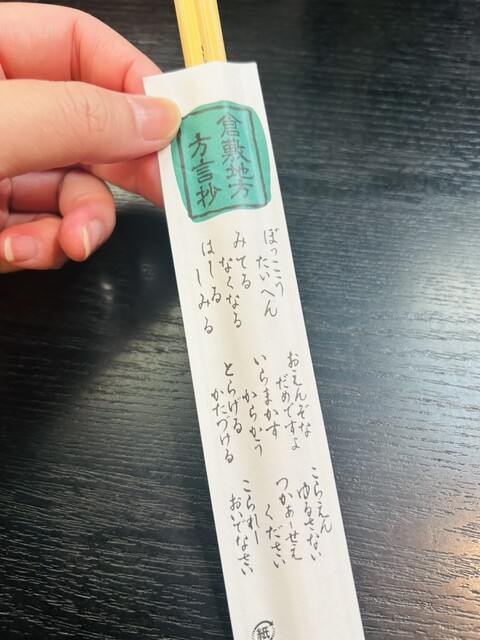 倉敷地方
方言抄
ぼっこう
たいへん
みてる
なくなる
はしる
しみる
おえんぞな
だめですよ
いらまかす
からかう
とらげる
かたづける
こらえん
ゆるさない
つかぁーせえ
ください
こられー
おいでなさい
紙